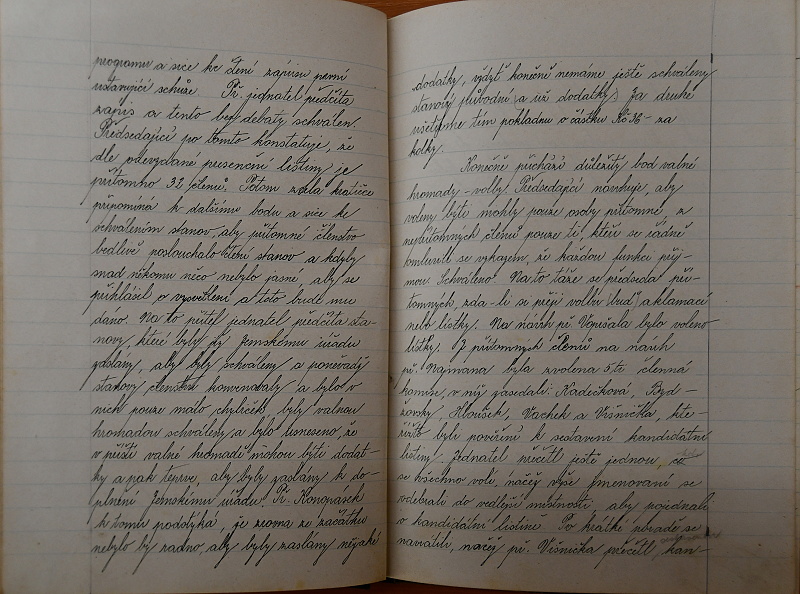 programu a sice ke čtení zápisu první
ustavující schůze. Př. jednatel předčítá
zápis a tento bez debaty schválen.
Předsedající po tomto konstatuje, že
dle odevzdané presenční listiny je
přítomno 32 členů. Potom zcela kratičce
připomíná k dalšímu bodu a sice ke
schválením stanov, aby přítomné členstvo
bedlivě poslouchalo čtení stanov a kdyby
snad někomu něco nebylo jasné, aby se
přihlásil o vysvětlení a toto bude mu
dáno. Na to přítel jednatel předčítá sta-
novy, které byly Zemskému úřadu
zaslány, aby byly schváleny a poněvadž
stanovy členstvu konvenovaly a bylo v
nich pouze málo chybiček, byly valnou
hromadou schváleny a bylo usneseno, že
v příští valné hromadě mohou býti dodat-
ky a pak teprve, aby byly zaslány k do-
plnění Zemskému úřadu. Př. Konopásek
k tomu podotýká, je zrovna ze začátku
nebylo by radno, aby byly zaslány nějaké
dodatky, vždyť konečně nemáme ještě schváleny
stanovy původní a už dodatky. Za druhé
ušetříme tím pokladnu o částku Kč 36- za
kolky.
Konečně přichází důležitý bod valné
hromady - volby. Předsedající navrhuje, aby
voleny býti mohly pouze osoby přítomné, z
nepřítomných členů pouze ti, kteří se řádně
omluvili se vzkazem, že každou funkci přij-
mou. Schváleno. Na to táže se předseda pří-
tomných, zda-li si přejí volbu buď aklamací
nebo lístky. Na návrh př. Vopršala bylo voleno
lístky. Z přítomných členů na návrh
př. Najmana byla zvolena 5-ti členná
komise, v níž zasedali: Kadečková, Byd-
žovský, Hloušek, Vachek a Višnička, kte-
řížto byli pověřeni k sestavení kandidátní
listiny. Jednatel přečetl ještě jednou, co
se všechno volí, načež výše jmenovaní se
odebrali do vedlejší místnosti, aby pojednali
o kandidátní listině. Po krátké poradě se
navrátili, načež př. Višnička přečetl kan-